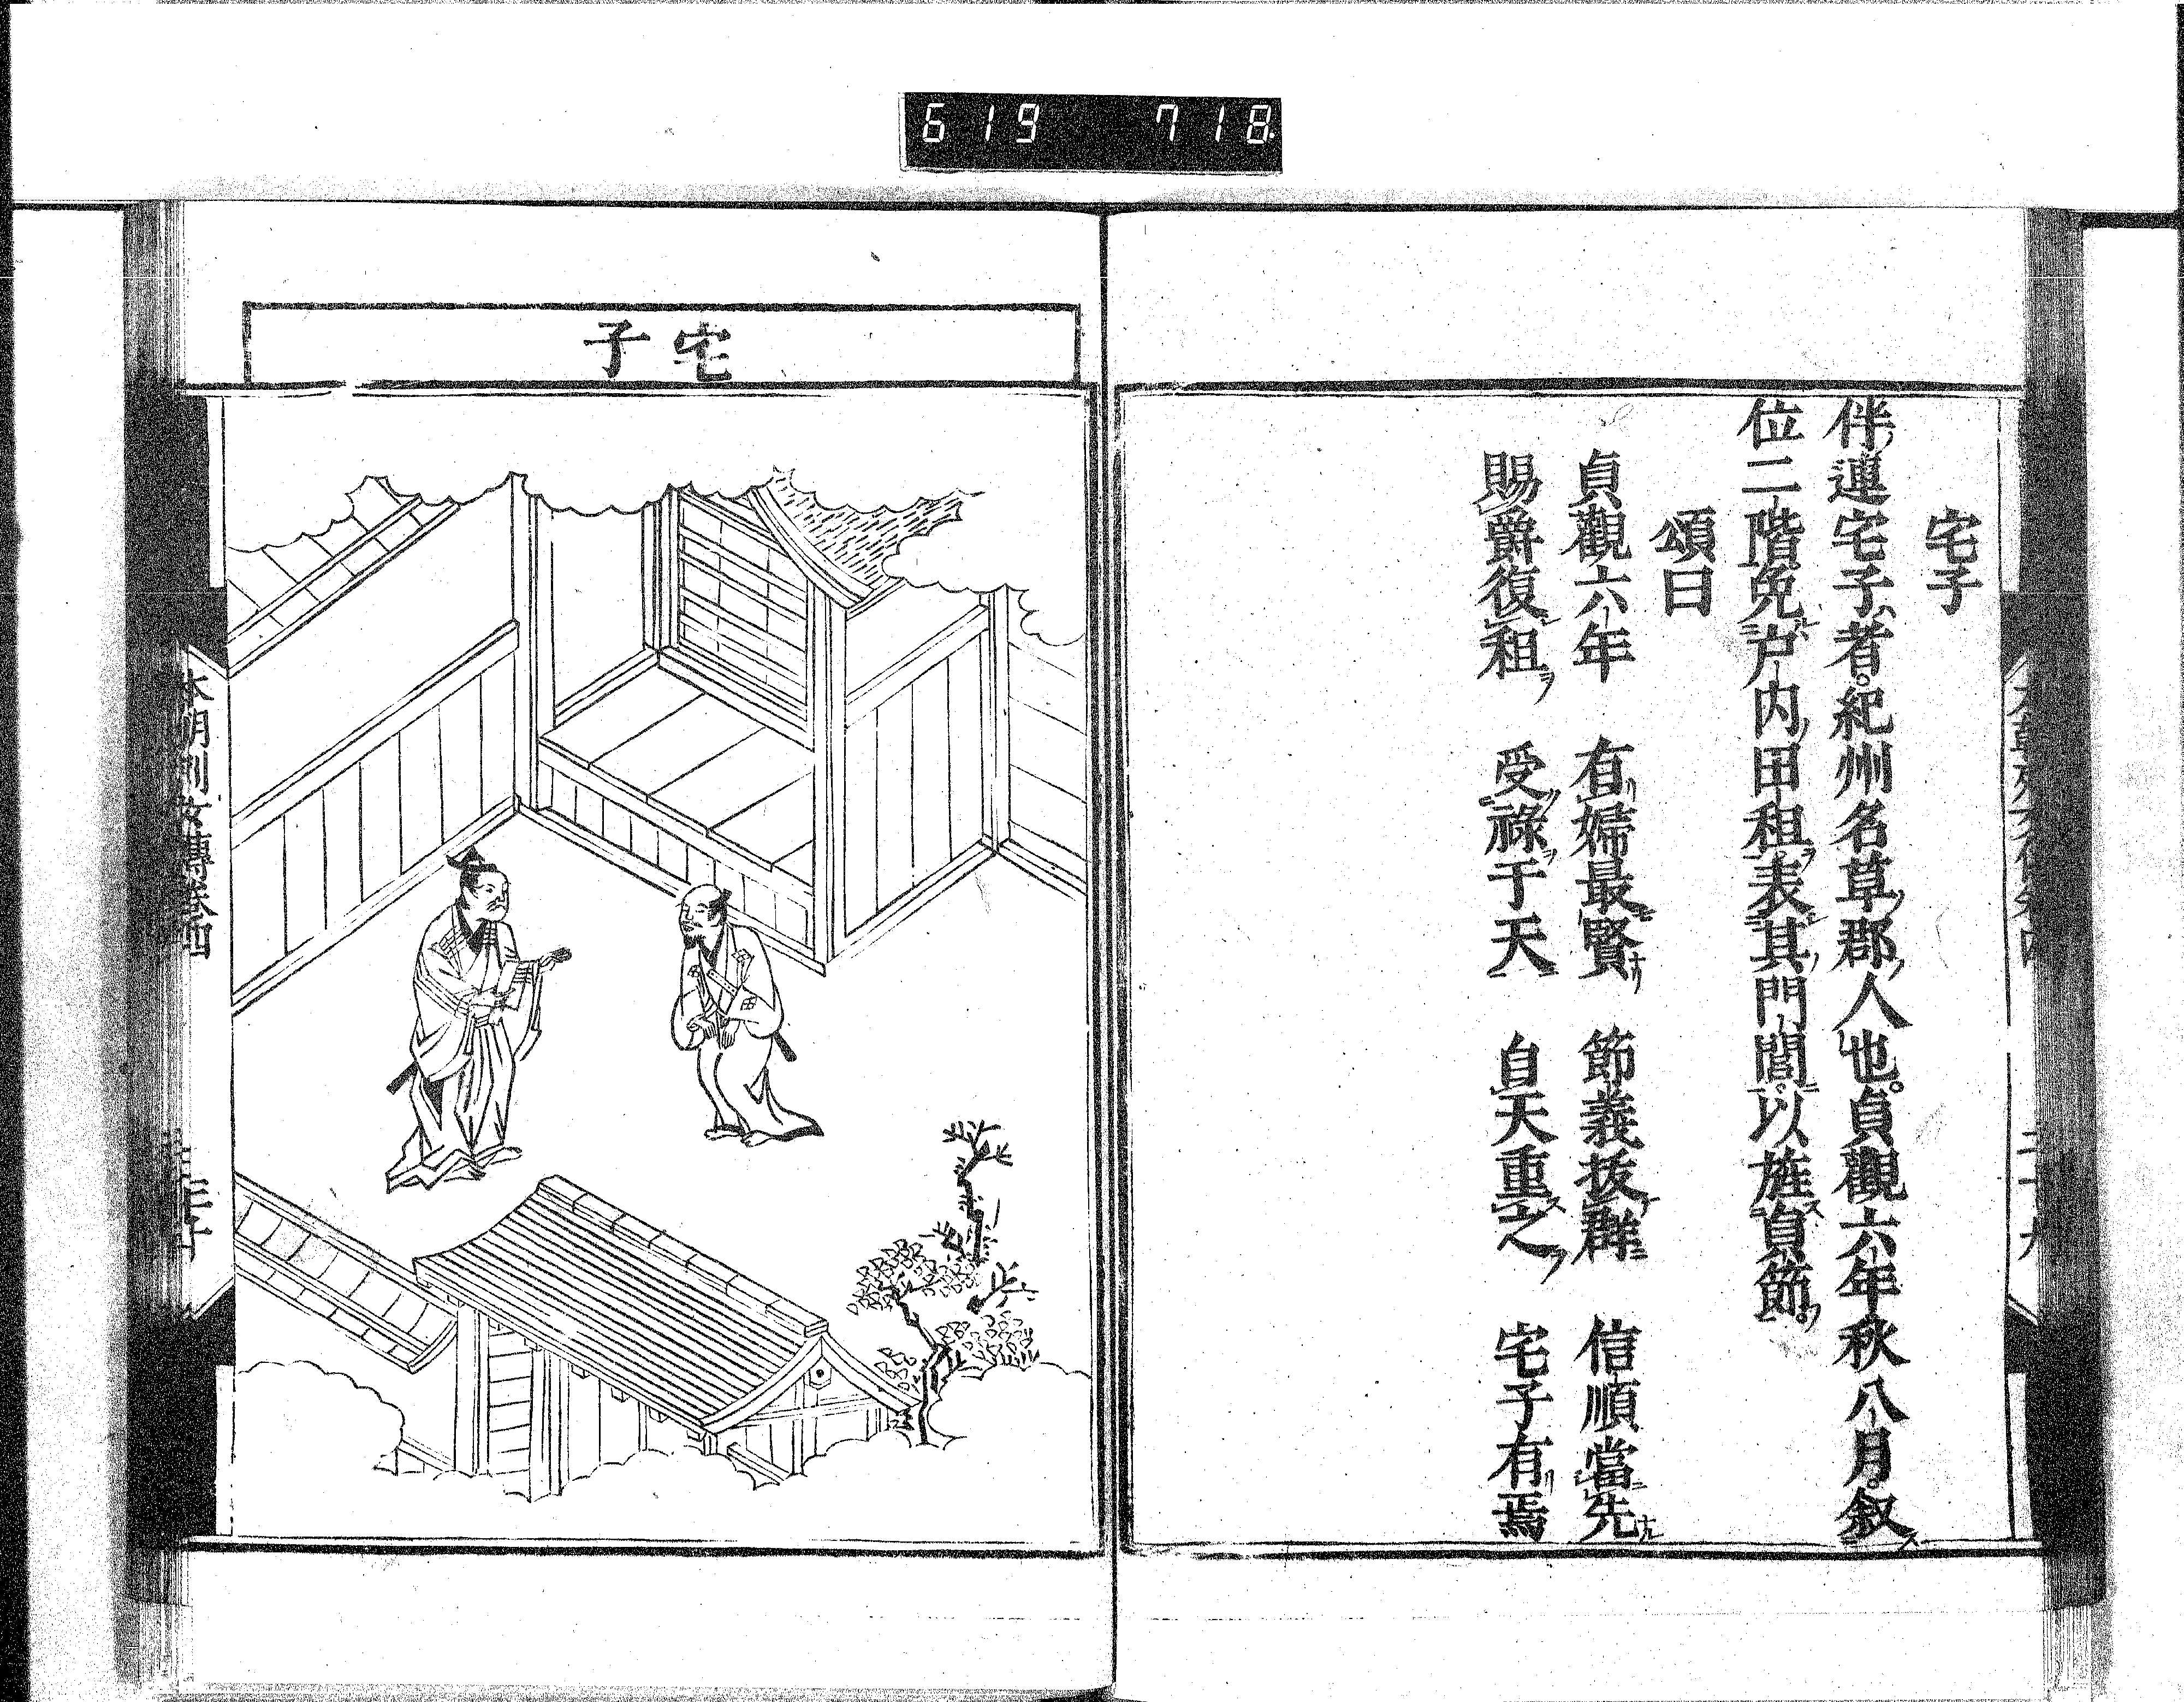 6 19 718.
宅子
伴連宅子者紀州名草郡人也貞觀六年秋八月叙
位二階免戸内田租表其門閭以旌貞節
頌曰
貞觀六年 有婦最賢 節義抜群 信順當先
賜爵復租 受祿于天 自天重之 宅子有焉
宅子
本朝列女傳卷四